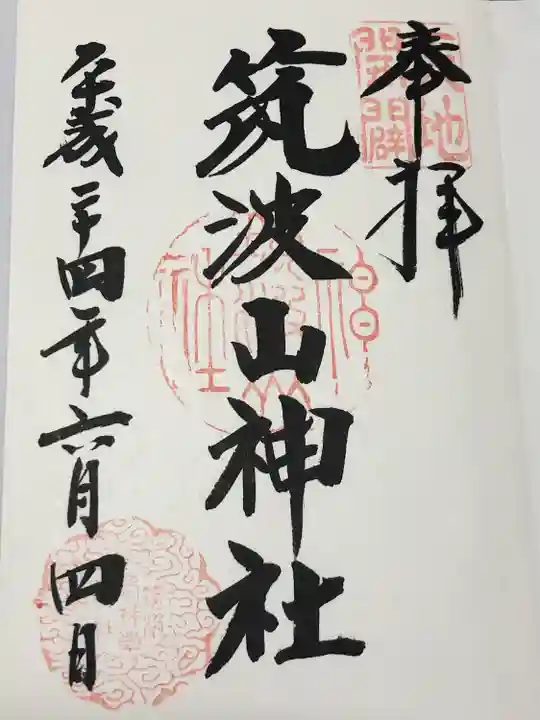 奉拝
天地開闢
筑波山神社
平成二十四年六月四日